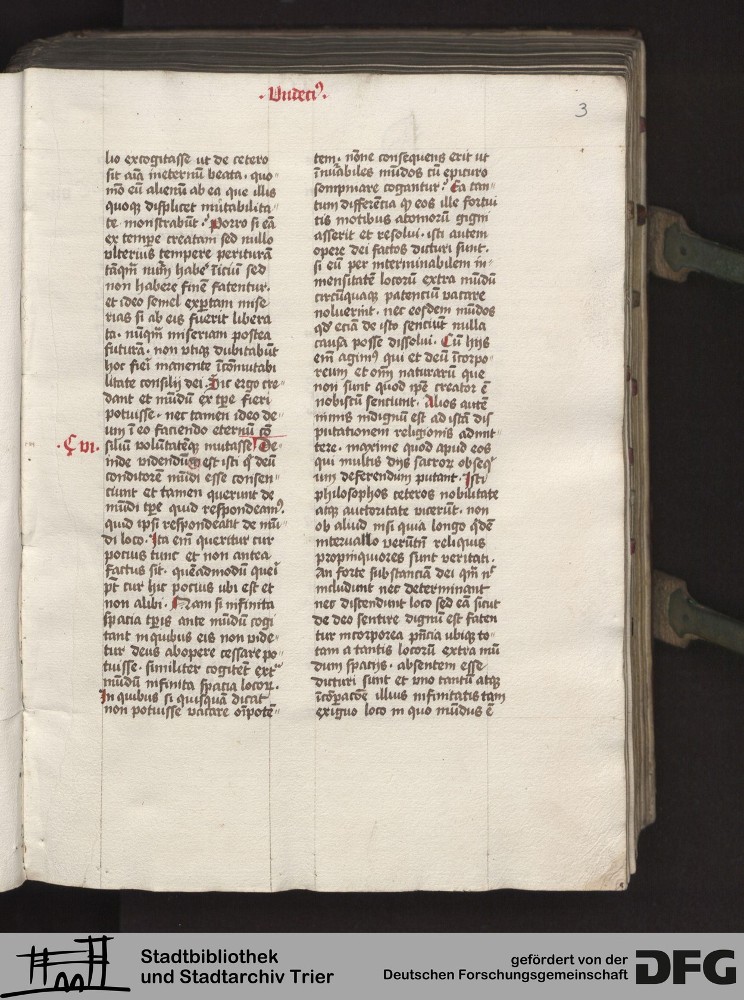 ·Vndeci⁹·
3
lio excogitasse ut de cetero
sit aīa ineternū beata. quo-
mō eū alienū ab ea que illis
quoq̄ displicet mutabilita-
te monstrabūt. Porro si eā
ex tempe creatam sed nullo
vlterius tempere periturā
tāqm̄ habe' īiciū sed
non habere finē fatentur.
et ideo semel exꝑtam mise
rias si ab eis fuerit libera
ta. nūqm̄ miseriam postea
futurā. non vtiqꝫ dubitabūt
hoc fieī manente īcōmutabi
litate consilij dei. Hic ergo cre-
dant et mūdū ex tꝑe fieri
potuisse. nec tamen ideo de-
um ī eo faciendo eternū cō
·C VI·
siliū volūtatēqꝫ mutasse De-
inde videndū est isti q̄ deū
conditorē mūdi esse consen-
ciunt et tamen querunt de
mūdi tꝑe quid respondeam⁹.
quid ipsi respondeāt de mū-
di loco. Ita em̄ queritur cur
pocius tunc et non antea
factus sit. quēadmodū queī
pt̄ cur hic pocius ubi est et
non alibi. Nam si infinita
spacia tꝑis ante mūdū cogi
tant in quibus eis non vide-
tur deus abopere cessare po-
tuisse. similiter cogitēt extª
mūdū infinita spacia locoꝝ.
In quibus si quisquā dicat
non potuisse vacare oīpotē-
tem. nōne consequens erit ut
īnūabiles mūdos cū epicuro
sompniare cogantur. Ea tan-
tum differēcia qꝫ eos ille fortui
tis motibus atomorū gigni
asserit et resolui. isti autem
opere dei factos dicturi sunt.
si eū per interminabilem in-
mensitatē locorū extra mūdū
circūquaqꝫ patenciū vacare
noluerint. nec eosdem mūdos
qd' eciā de isto senciūt nulla
causa posse dissolui. Cū hijs
em̄ agim⁹ qui et deū īcorpo-
reum et om̄ naturarū que
non sunt quod ip̄e creator ē
nobiscū senciunt. Alios autē
nimis indignū est ad istā dis
putationem religionis admit-
tere. maxime quod apud eos
qui multis dijs sacroꝝ obseq'
um deferendum putant. Isti
philosophos ceteros nobilitate
atqꝫ auctoritate vicerūt. non
ob aliud nisi quia longo q̄dē
interuallo verūtn̄ reliquis
propinquiores sunt veritati.
An forte substanciā dei qm̄ nᵉ
includunt nec determinant
nec distendunt loco sed eā sicut
de deo sentire dignū est faten
tur incorporea pn̄cia ubiqꝫ to-
tam a tantis locorū extra mū
dum spacijs. absentem esse
dicturi sunt et vno tantū atqꝫ
īcōꝑacōe illius infinitatis tam
exiguo loco in quo mūdus ē
Stadtbibliothek
und Stadtarchiv Trier
gefördert von der
Deutschen Forschungsgemeinschaft
DFG